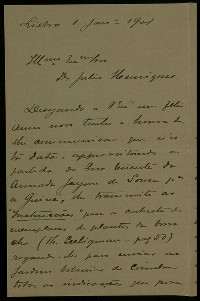 Lisboa 1 Jan.º 1901
Illmo Exmo Snr
Dr. Julio Henriques
Desejando a V. Exª um feliz
anno novo tenho a honra de
lhe communicar que n'es
ta data, approveitando a
partida do Snr
Armando de Sousa pª
a Guiné, lhe transmitto as
"Instrucções" para a colheita de
exemplares de plantas de borra
cha (
rogando-lhe para enviar ao
Jardim Botanico de Coimbra
todas as indicações que possa